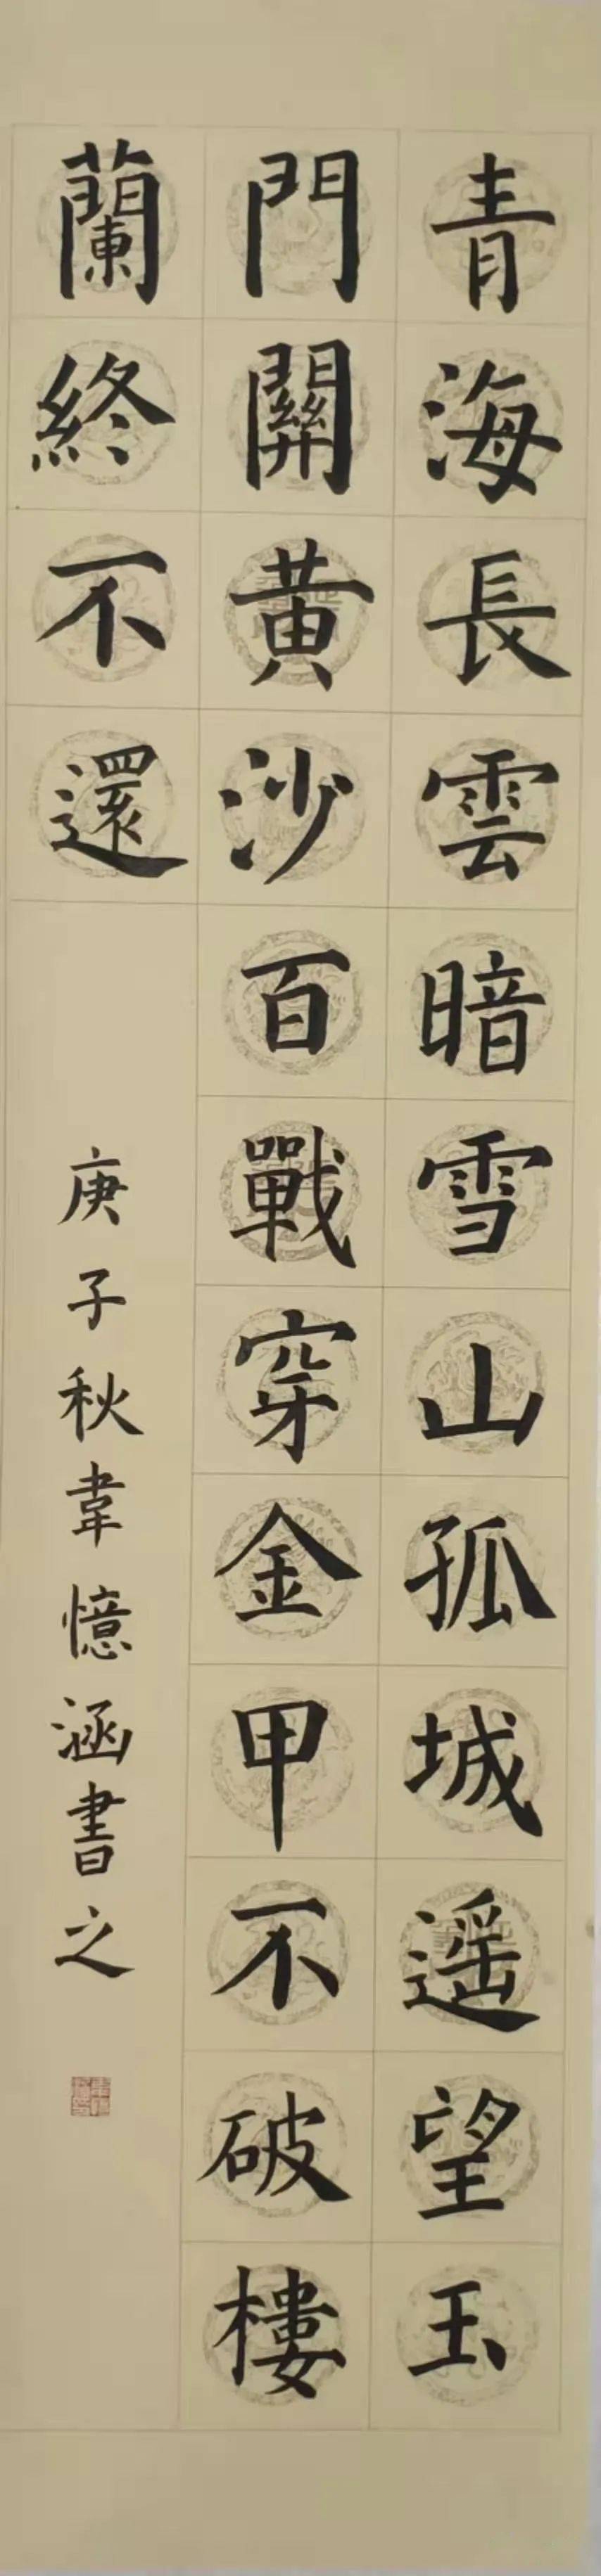 青海長雲暗雪山孤城遥望玉
門關黄沙百戰穿金甲不破樓
蘭終不還
庚子秋韋憶涵書之